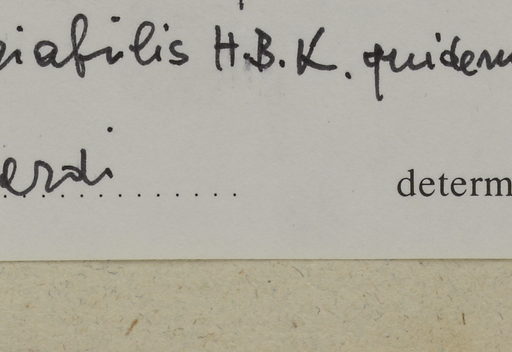 iabilis H.B.K. quidem
erdi .............
determ